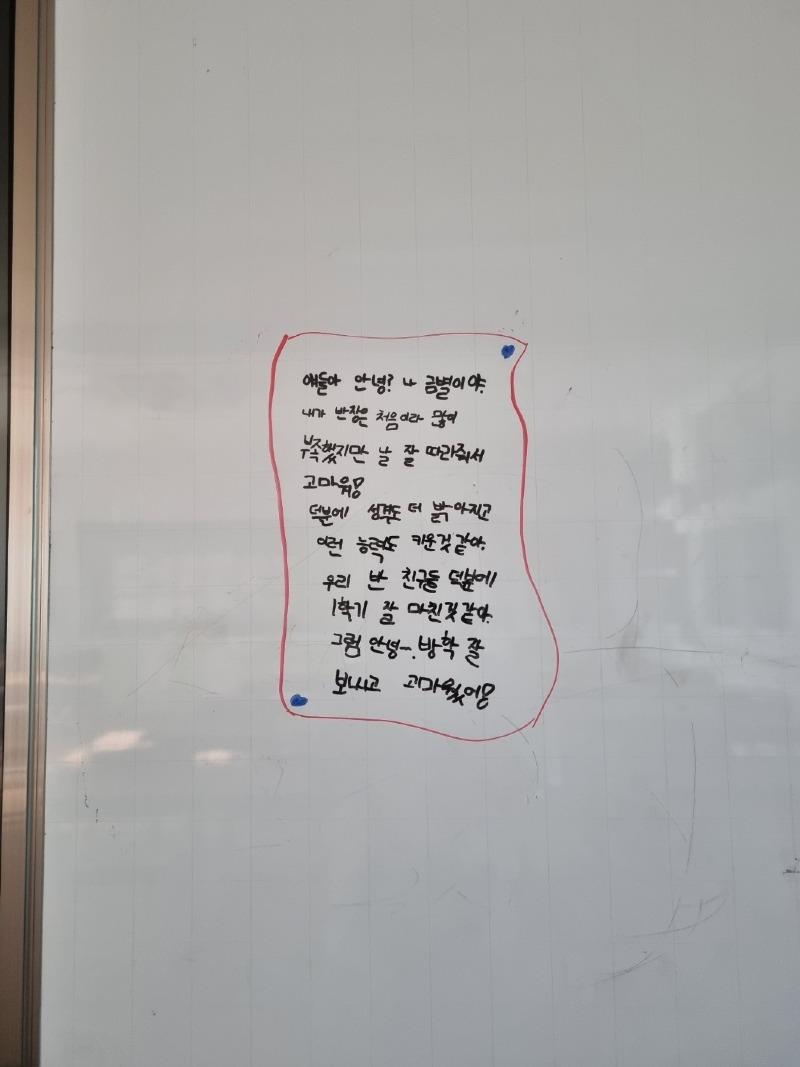 얘들아 안녕? 나 금별이야.
내가 반장은 처음이라 많이
부족했지만 날 잘 따라줘서
고마워!
덕분에 성격도 더 밝아지고
이런 능력도 키운것같아.
우리 반 친구들 덕분에
1학기 잘 마친것같아.
그럼 안녕~. 방학 잘
보내고 고마웠어!